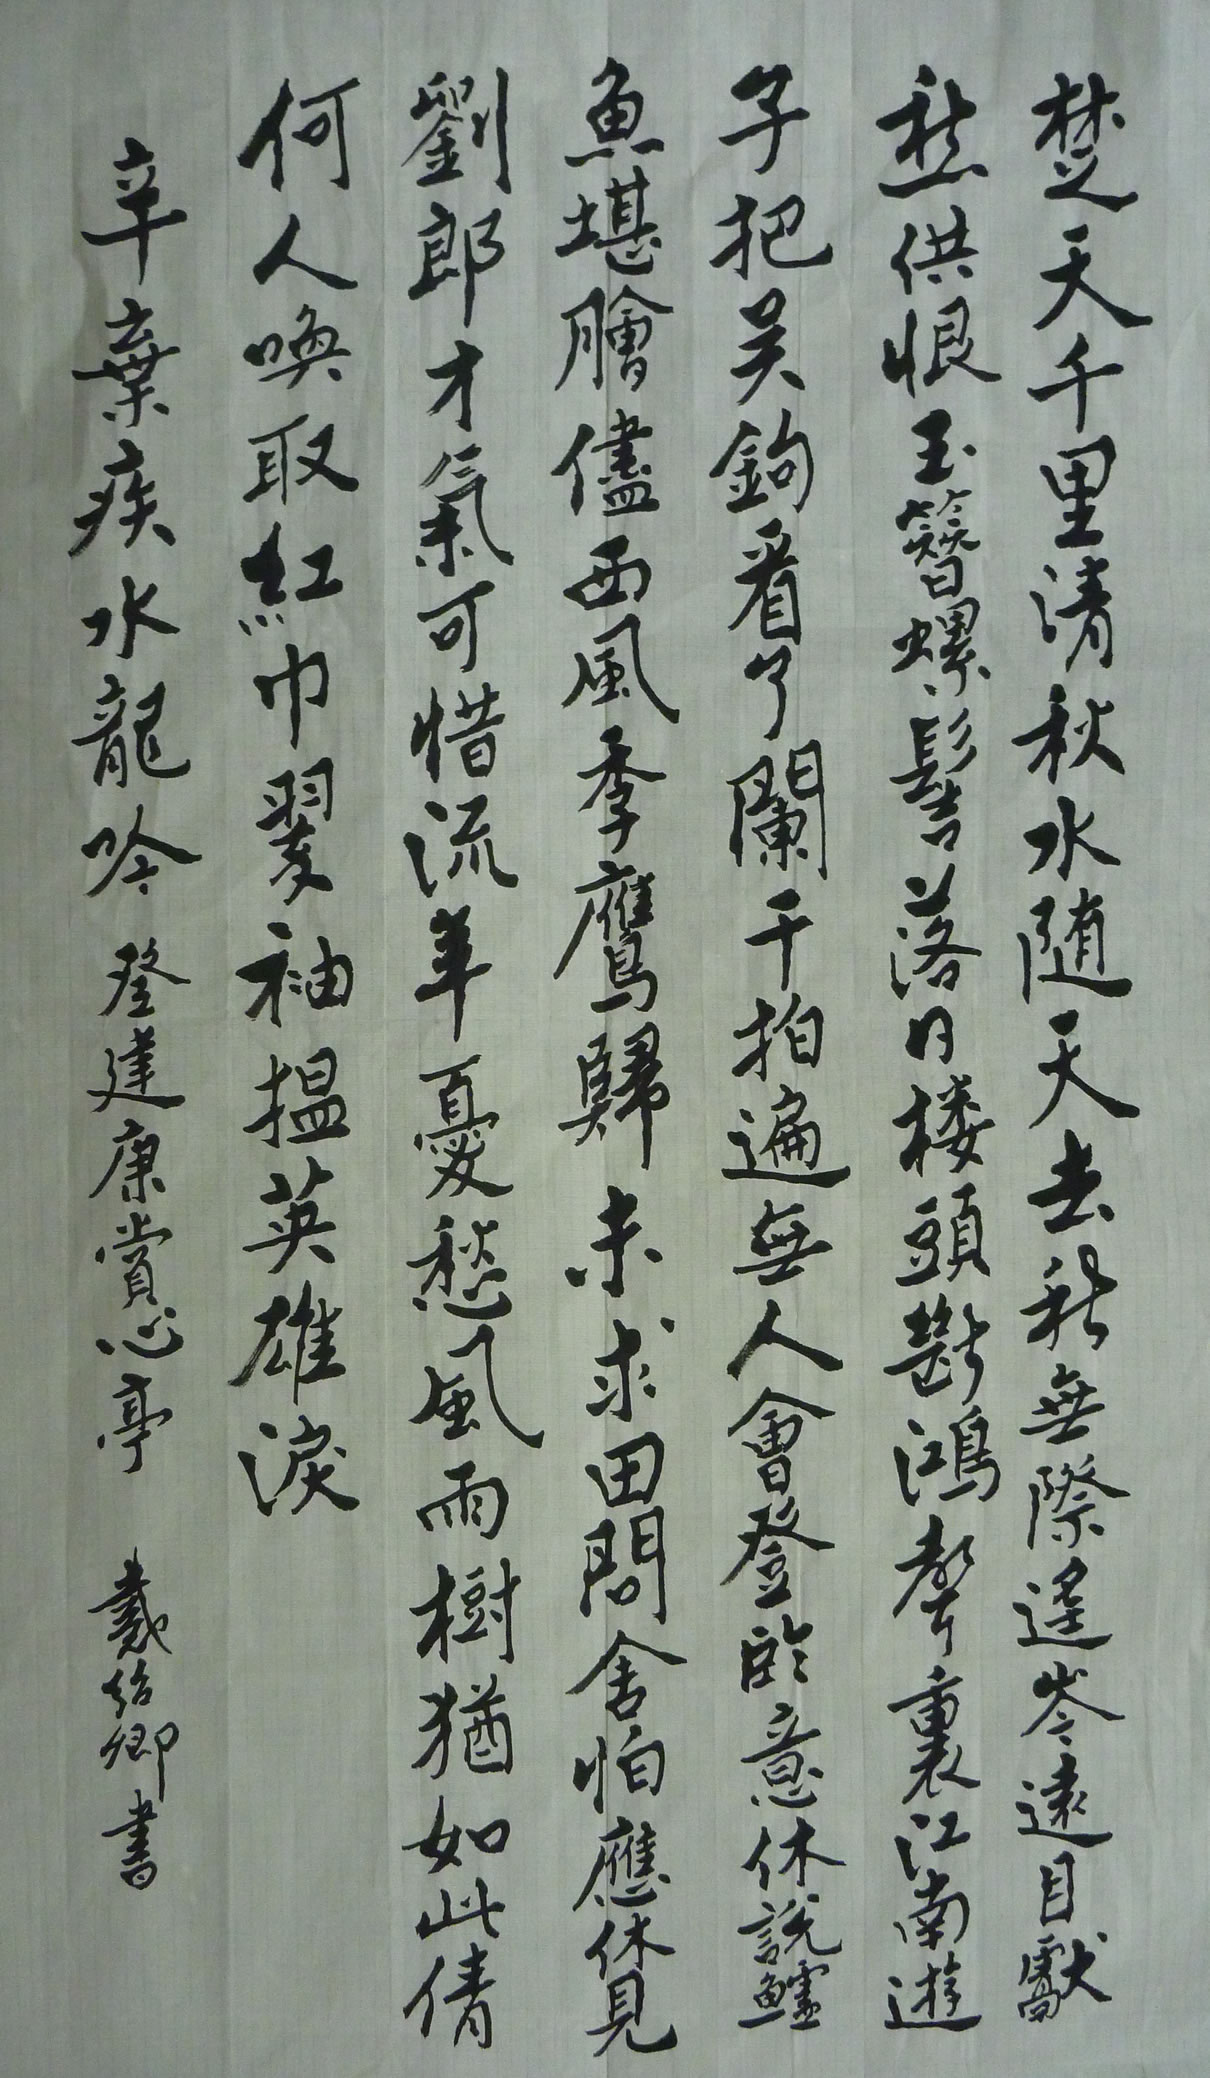 楚天千里清秋水随天去秋無際遥岑遠目獻
愁供恨玉簪螺髻落日楼頭斷鴻聲裏江南遊
子把吴鉤看了闌干拍遍無人會登臨意休說鱸
魚堪膾儘西風季鷹歸未求田問舍怕應休見
劉郎才氣可惜流年憂愁風雨樹猶如此倩
何人唤取紅巾翠袖揾英雄淚
辛棄疾水龍吟 登建康賞心亭 戴绍卿書